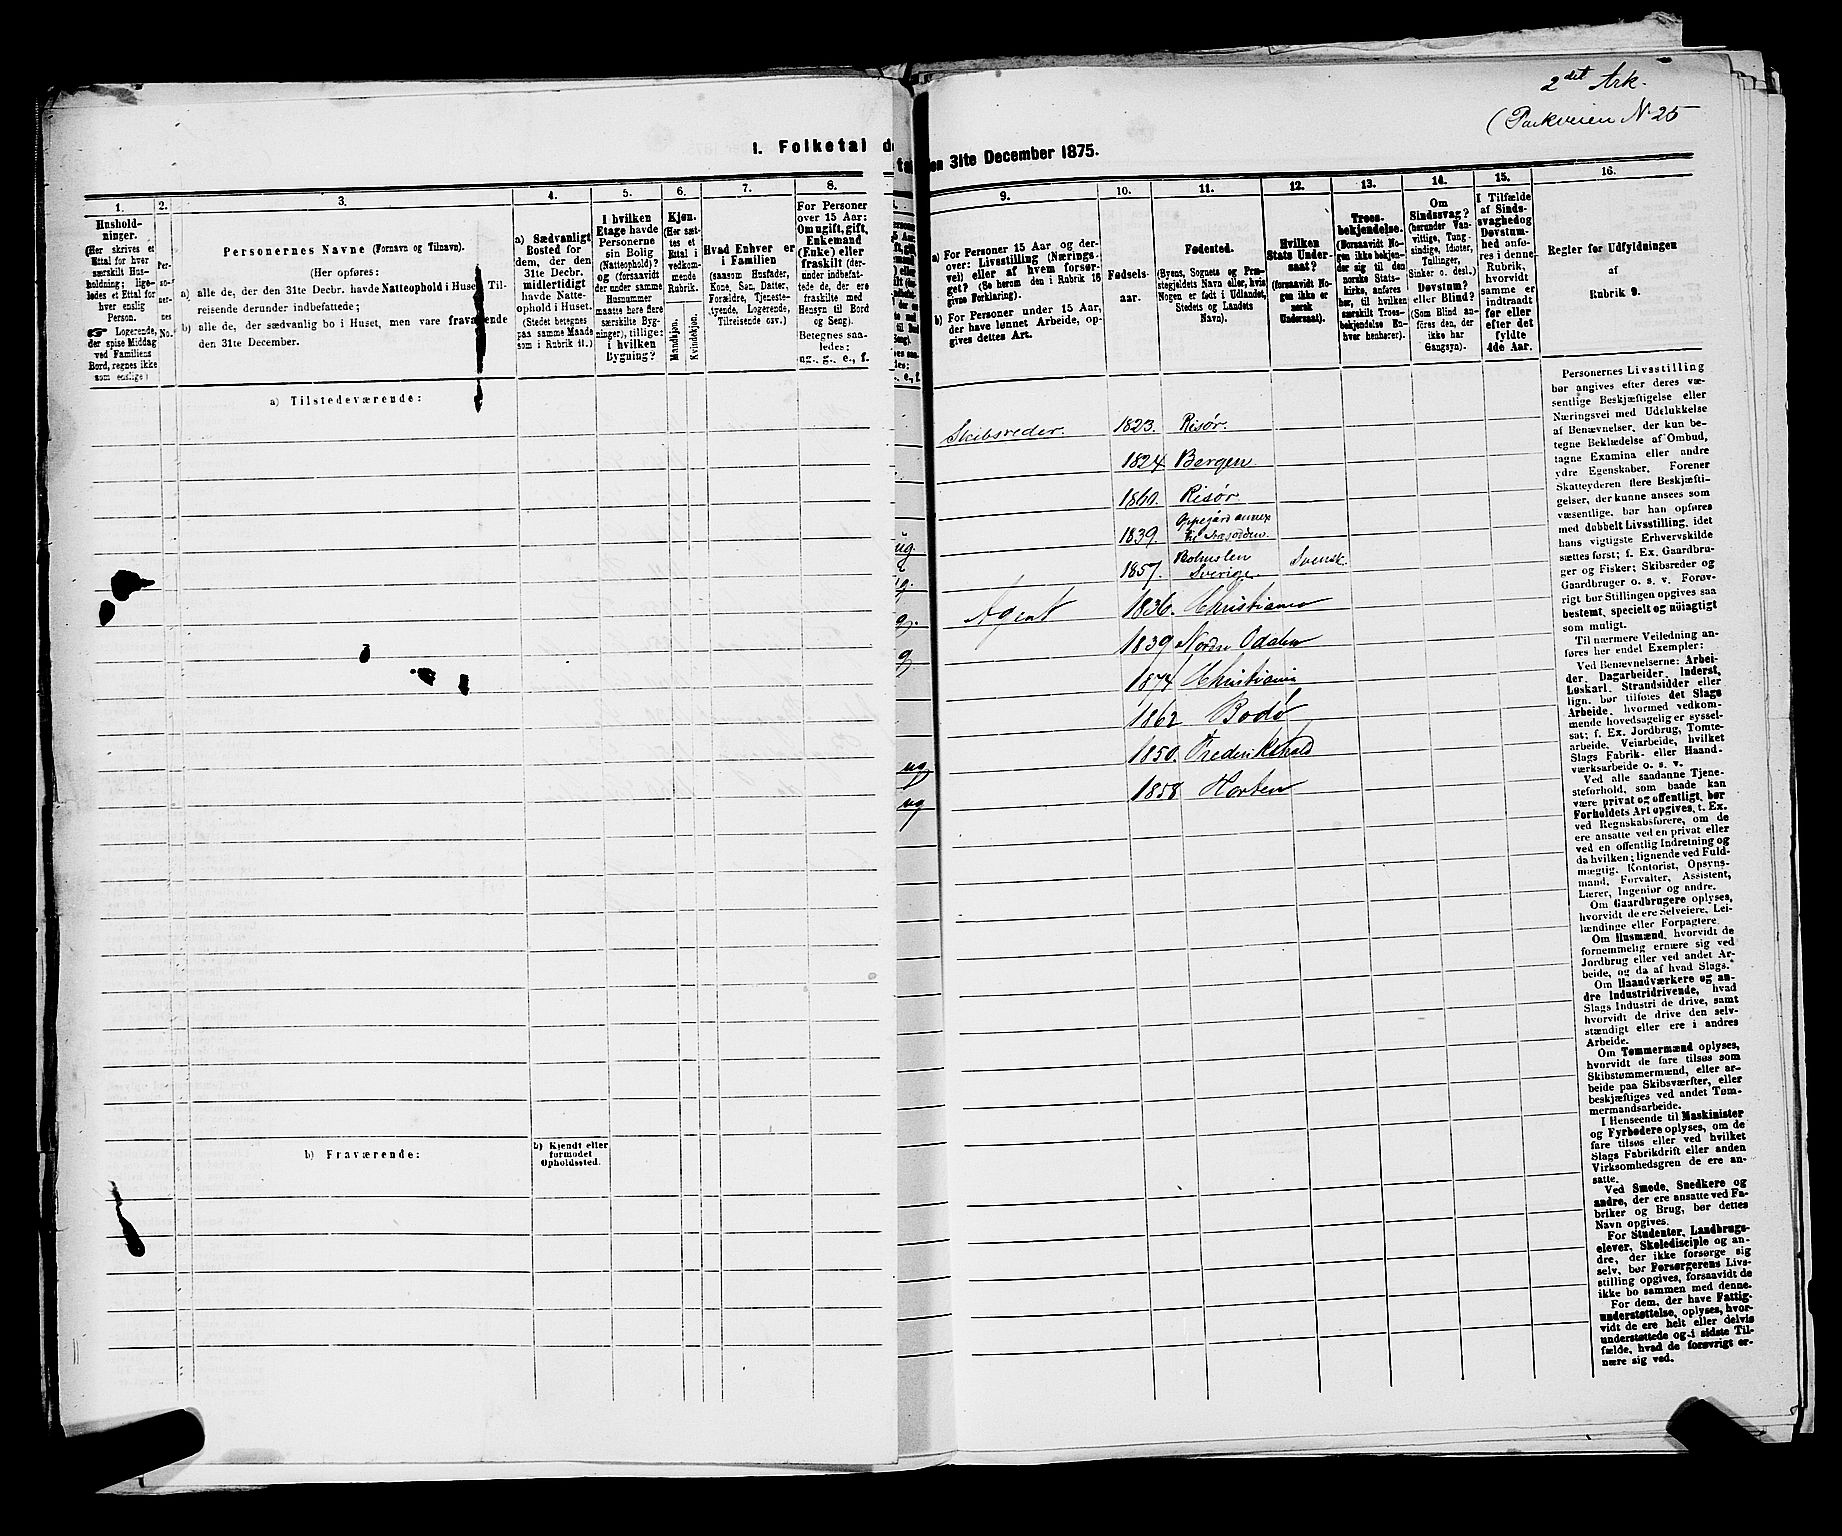 2det Ark.
(Parkveien N. 25
I. Folketal de
en 31te December 1875.
1.
Hushold-
ninger.
(Her skrives et
Ettal for hver
særskilt Hus-
holdning; lige-
ledes et Ettal for
hver enslig
Person.
Logerende,
der spise Middag
ved Familiens
Bord, regnes ikke
som enslige)
2.
Per-
so-
ner-
nes
No.
3.
Personernes Navne (Fornavn og Tilnavn).
(Her opføres:
a) alle de, der den 31te Decbr. havde Natteophold i Huset, Til-
reisende derunder indbefattede;
b) alle de, der sædvanlig bo i Huset, men vare fraværende
den 31te December.
4.
a) Sædvanligt
Bosted for
dem, der den
31te Decbr.
midlertidigt
havde Natte-
ophold i Huset.
(Stedet betegnes
paa samme Maade
som i Rubrik 11.)
5.
I hvilken
Etage havde
Personerne
sin Bolig
(Natteophold)?
og (forsaavidt
der under samme
Husnummer
maatte høre flere
særskilte Byg-
ninger), tillige:
i hvilken
Bygning?
6.
Kjøn.
(Her sæt-
tes et
Ettal i
vedkom-
mende
Rubrik.
Mandkjøn.
Kvindekjøn.
7.
Hvad Enhver er
i Familien
(saasom Husfader,
Kone, Søn, Datter,
Forældre, Tjeneste-
tyende, Logerende,
Tilreisende osv.)
8.
For Personer
over 15 Aar:
Om ugift, gift,
Enkemand
(Enke) eller
fraskilt (der-
under indbefat-
tede de, der ere
fraskilte med
Hensyn til Bord
og Seng).
Betegnes saa-
ledes:
ug. g. e., f.
a) Tilstedeværende:
b) Fraværende:
b) Kjendt eller
formodet
Opholdssted.
9.
a) For Personer 15 Aar og der-
over: Livsstilling (Nærings-
vei) eller af hvem forsør-
get? (Se herom den i Rubrik 16
givne Forklaring).
b) For Personer under 15 Aar,
der have lønnet Arbeide, op-
gives dettes Art.
10.
Fødsels-
aar.
11.
Fødested.
(Byens, Sognets og Præ-
stegjeldets Navn eller, hvis
Nogen er født i Udlandet,
Stedets og Landets
Navn).
12.
Hvilken
Stats Under-
saat?
(forsaavidt No-
gen ikke er
norsk
Undersaat).
13.
Troes-
bekjendelse.
(Forsaavidt No-
gen ikke bekjen-
der sig til den
norske Stats-
kirke, anføres
her, til hvilken
særskilt Troes-
bekjendelse En-
hver henhører).
14.
Om
Sindssvag?
(herunder Van-
vittige, Tung-
sindige, Idioter,
Tullinger,
Sinker o. desl.)
Døvstum?
eller Blind?
(Som Blind an-
føres den, der
ikke har
Gangsyn).
15.
I Tilfælde
af Sinds-
svaghedog
Døvstum-
hed anfø-
res i denne
Rubrik,
hvorvidt
samme er
indtraadt
før eller
efter det
fyldte
4de Aar.
16.
Regler for Udfyldningen
af
Rubrik 9.
Skibsreder. 1823. Risør.
1824 Bergen
1860. Risør
1839. Oppegård annex
til Næsodden.
ug.
1857. Bohuslen
Sverige Svensk
g.
g. Agent 1836. Christiania
g 1839 Nordre Odalen
1874 Christiania
1862 Bodø
ug 1850. Frederikshald
ug 1858 Horten
Personernes Livsstilling
bør angives efter deres væ-
sentlige Beskjæftigelse eller
Næringsvei med Udelukkelse
af Benævnelser, der kun be-
tegne Beklædelse af Ombud,
tagne Examina eller andre
ydre Egenskaber. Forener
Skatteyderen flere Beskjæfti-
gelser, der kunne ansees som
væsentlige, bør han opføres
med dobbelt Livsstilling, idet
hans vigtigste Erhvervskilde
sættes først; f. Ex. Gaardbru-
ger og Fisker; Skibsreder og
Gaardbruger o. s. v. Forøv-
rigt bør Stillingen opgives saa
bestemt, specielt og nøiagtigt
som muligt.
Til nærmere Veiledning an-
føres her endel Exempler:
Ved Benævnelserne: Arbei-
der, Dagarbeider, Inderst,
Løskarl, Strandsidder eller
lign. bør tilføies det Slags
Arbeide, hvormed vedkom-
mende hovedsagelig er syssel-
sat; f. Ex. Jordbrug, Tomte-
arbeide, Veiarbeide, hvilket
Slags Fabrik- eller Haand-
værksarbeide o. s. v.
Ved alle saadanne Tjene-
steforhold, som baade kan
være privat og offentligt, bør
Forholdets Art opgives, t. Ex.
ved Regnskabsførere, om de
ere ansatte ved en privat eller
ved en offentlig Indretning og
da hvilken; lignende ved Fuld-
mægtig, Kontorist, Opsyns-
mand, Forvalter, Assistent,
Lærer, Ingeniør og andre.
Om Gaardbrugere oplyses,
hvorvidt de ere Selveiere, Lei-
lændinge eller Forpagtere.
Om Husmænd, hvorvidt de
fornemmelig ernære sig ved
Jordbrug eller ved andet Ar-
beide, og da af hvad Slags.
Om Haandværkere og an-
dre Industridrivende, hvad
Slags Industri de drive, samt
hvorvidt de drive den selv-
stændigt eller ere i andres
Arbeide.
Om Tømmermænd oplyses,
hvorvidt de fare tilsøs som
Skibstømmermænd, eller ar-
beide paa Skibsværfter, eller
beskjæftiges ved andet Tøm-
mermandsarbeide.
I Henseende til Maskinister
og Fyrbødere oplyses, om de
fare tilsøs eller ved hvilket
Slags Fabrikdrift eller anden
Virksomhedsgren de ere an-
satte.
Ved Smede, Snedkere og
andre, der ere ansatte ved Fa-
briker og Brug, bør dettes
Navn opgives.
For Studenter, Landbrugs-
elever, Skoledisciple og an-
dre, der ikke forsørge sig
selv, bør Forsørgerens Livs-
stilling opgives, forsaavidt de
ikke bo sammen med denne.
For dem, der have Fattig-
understøttelse, oplyses, hvor-
vidt de ere helt eller delvis
understøttede og i sidste Til-
fælde, hvad de forøvrigt er-
nære sig ved.